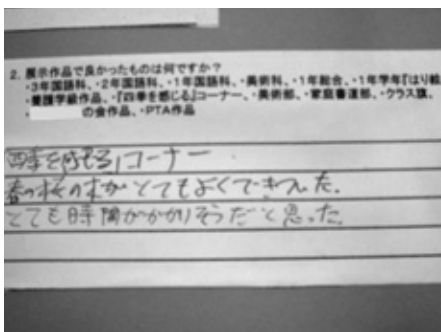 2. 展示作品で良かったものは何ですか?
・3年国語科、・2年国語科、・1年国語科、・美術科、・1年総合、・1年学年『はり絵
・養護学級作品、・『四季を感じる』コーナー、・美術部、・家庭書道部、・クラス旗、
・ の会作品、・PTA作品
四季を感じる」コーナー
春の桜の木がとてもよくできてた。
とても時間がかかりそうだと思った。